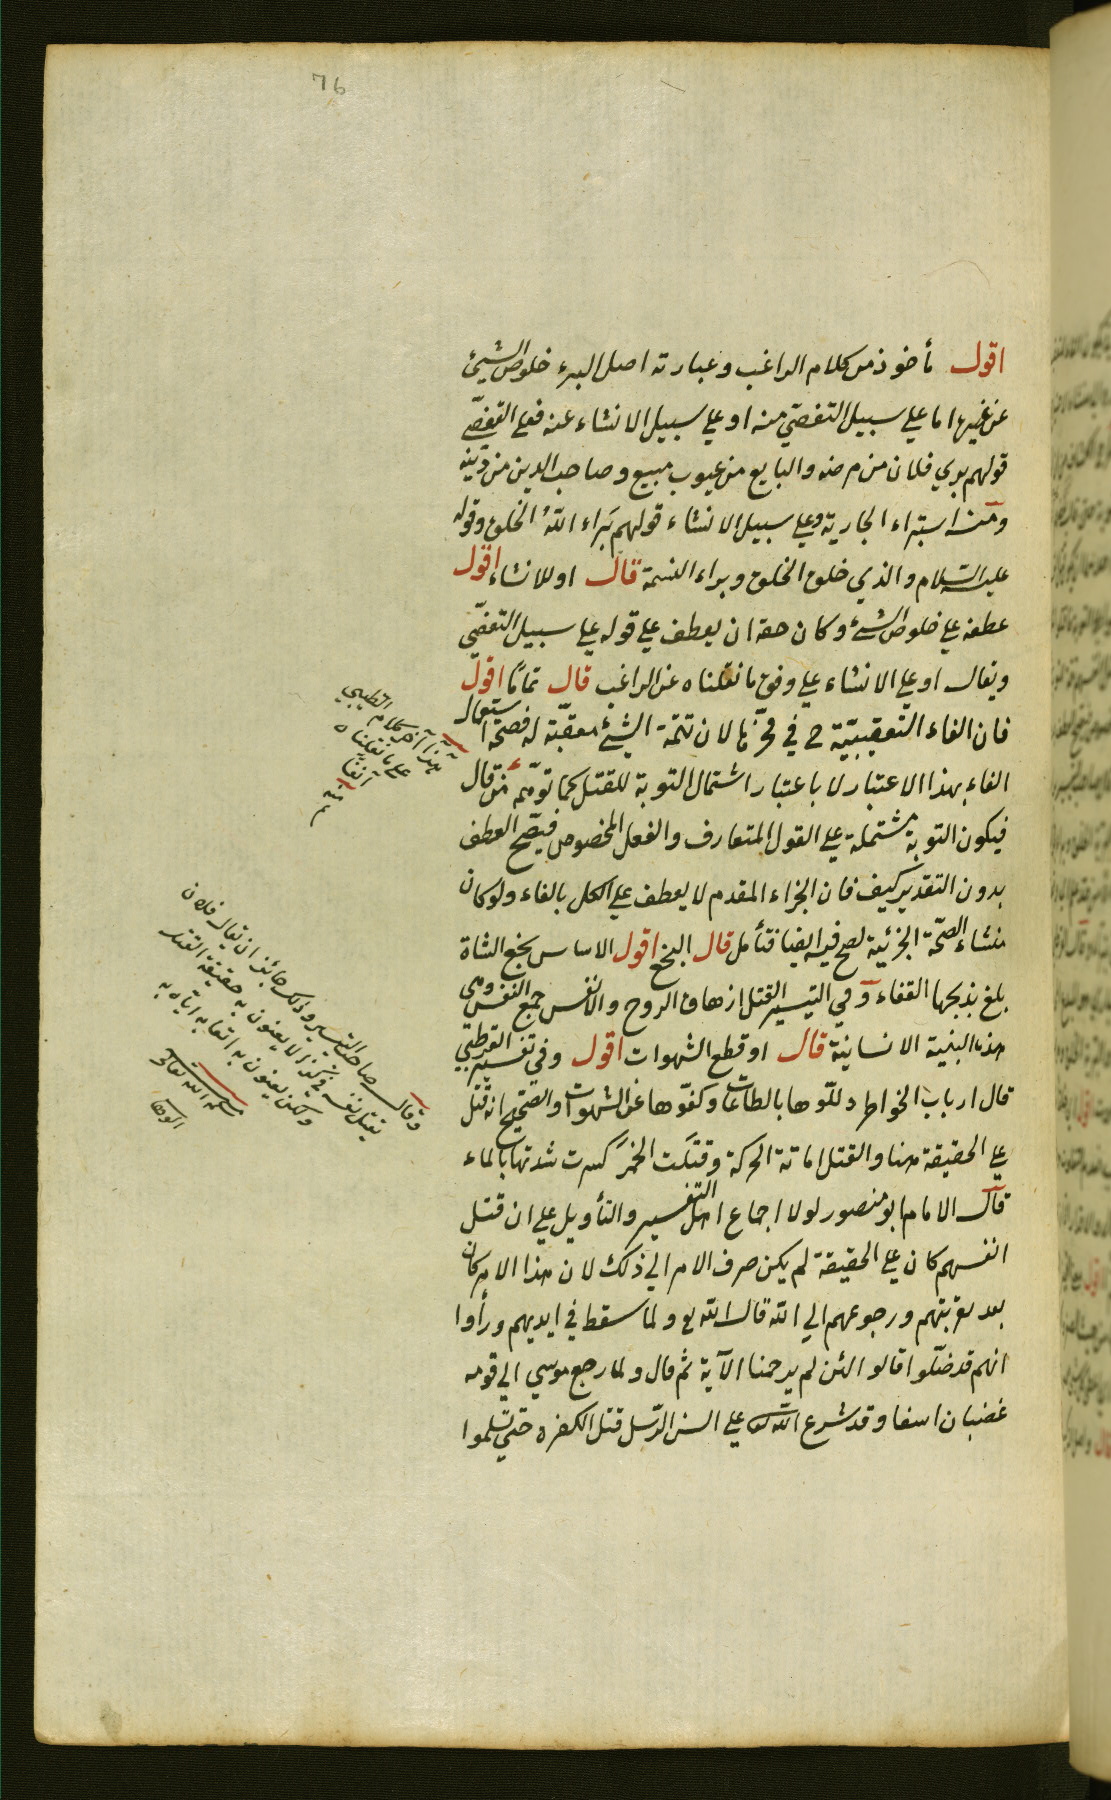 76
اقول مأخوذ من كلام الراغب وعبارته اصل البرء خلوص الشيئ
عن غيره اما علي سبيل التفصّي منه او علي سبيل الانشاء عنه فعلي التفصّي
قولهم بري فلان من مرضه والبايع من عيوب مبيع وصاحب الدين من دينه
ومنه استبراء الجارية وعلي سبيل الانشاء قولهم بَراء اللهُ الخلق وقوله
عليه السّلام والذي خلق الخلق وبراء النسمة قال او للانشاء اقول
عطفه علي خلوص الشئ وكان حقه ان يعطف علي قوله علي سبيل التفصّي
ويقال او علي الانشاء علي وفق ما نقلناه عن الراغب قال تماما اقول
فان الفاء التعقيبيّة ح في محزّها لان تتمّة الشيئ معقّبة له فصحّ استعمال
الفاء بهذا الاعتبار لا باعتبار اشتمال التوبة للقتل كما توهّمه من قال
فيكون التوبة مشتملة علي القول المتعارف والفعل المخصوص فيصّح العطف
بدون التقدير كيف فان الجزاء المقدم لا يعطف علي الكل بالفاء ولو كان
منشاء الصحّة الجزئية لصح فيه ايضا فتأمل قال البخع اقول الاساس بخع الشاة
بلغ بذبحها القفاء وفي التيسير القتل ازهاق الروح والانفس جمع النفس وهي
هذه البنية الانسانية قال او قطع الشهوات اقول وفي تفسير القرطبي
قال ارباب الخواطر دللّوها بالطاعات وكفّوها عن الشهوات والصحيح انه قتل
علي الحقيقة هنا والقتل اماتة الحركة وقتلت الخمرَ كسرت شدتها بالماء
قال الامام ابو منصور لولا اجماع اهل التفسير والتأويل علي ان قتل
انفسهم كان علي الحقيقة لم يكن صرف الامر الي ذلك لان هذا الامر كان
بعد توبتهم ورجوعهم الي الله قال الله تع ولما سقط في ايديهم ورأوا
انهم قد ضلّوا قالوا لئن لم يرحمنا الآية ثم قال ولما رجع موسي الي قومه
غضبان اسفا وقد شرع الله علي السن الرّسل قتل الكفره حتي يسلموا
هذا آخر كلام الطيبي
علي ما نقلناه
آنفا
منه
وقال صاحب التيسير وذلك جائز ان يقال فلان
يقتل نفسه في كذا لا يعنون به حقيقة القتل
ولكن يعنون به اتعابه اياه به